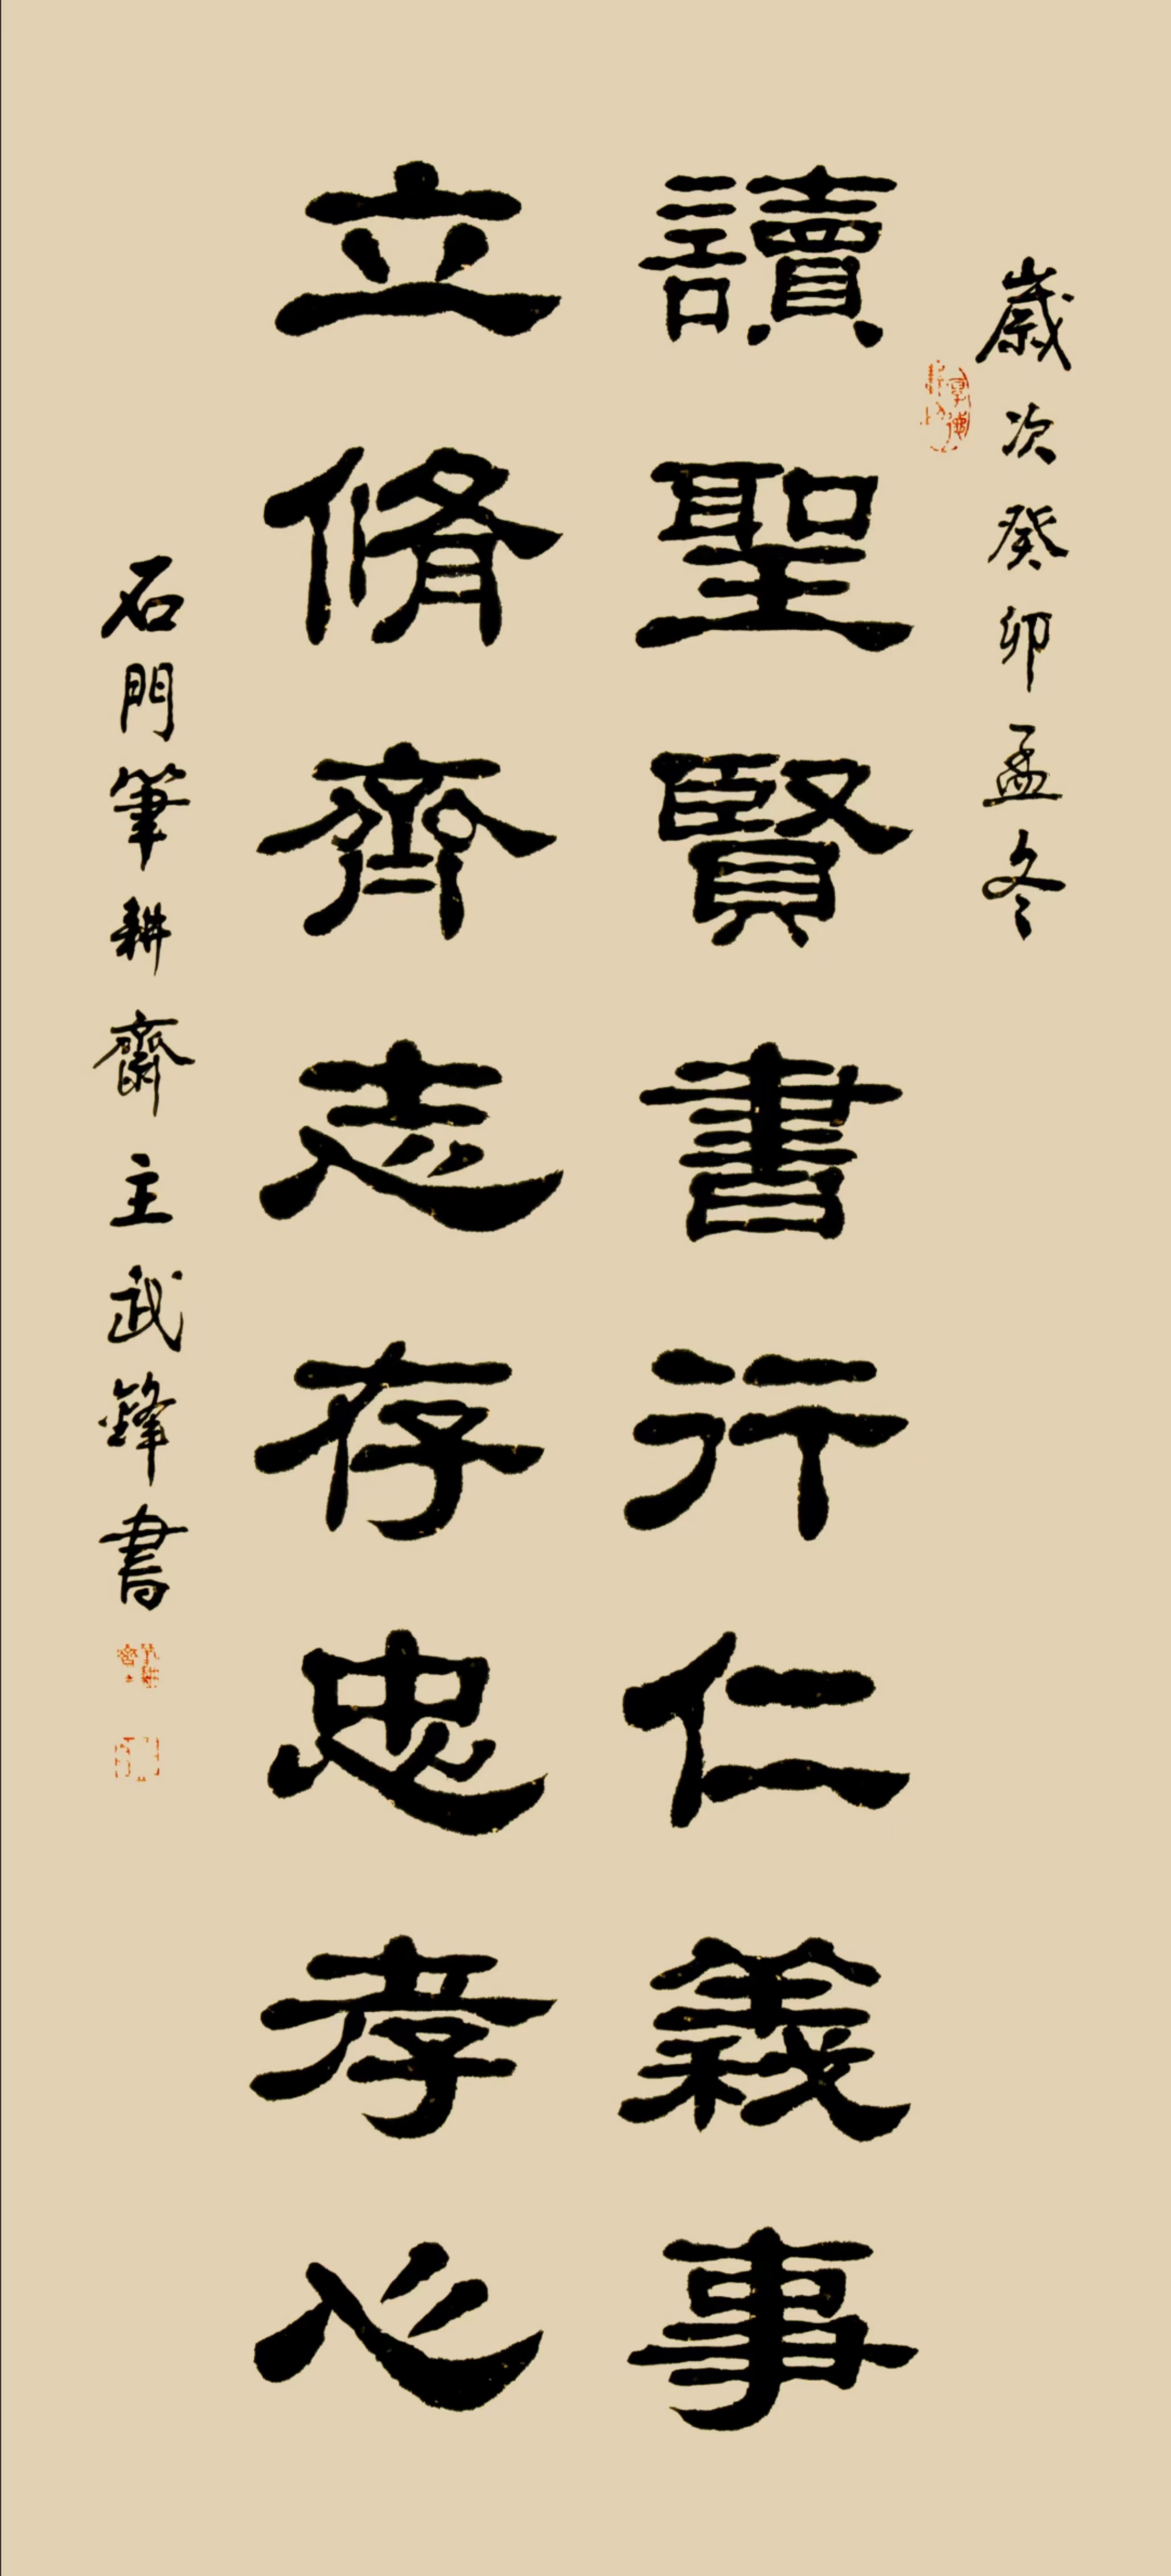 歲次癸卯孟冬
讀聖賢書行仁義事
立脩齊志存忠孝心
石門筆耕齋主武鋒書